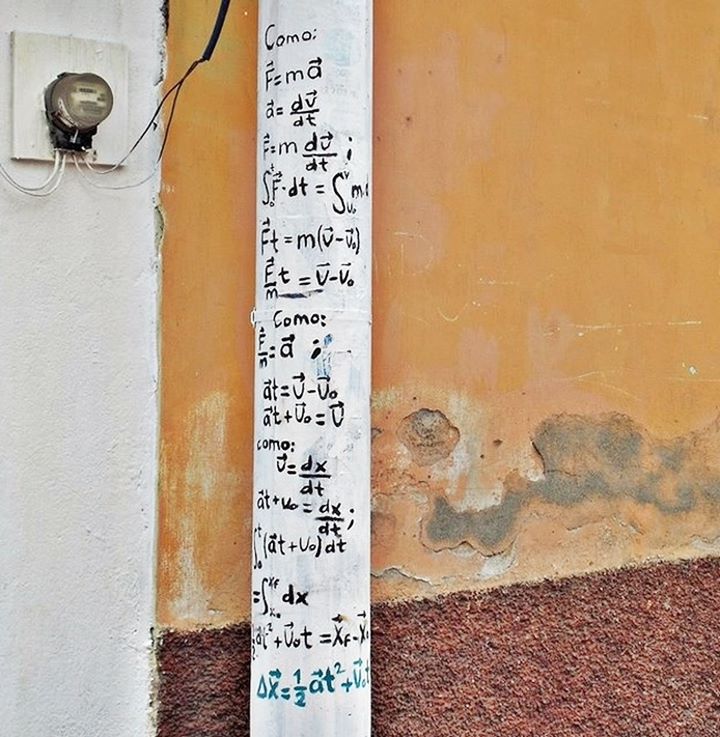 Como:
F⃗=ma⃗
a⃗=dv⃗/dt
F⃗=m dv⃗/dt ;
∫₀ᵗF⃗·dt = ∫ᵥ₀ᵛ m
F⃗t=m(v⃗-v⃗₀)
F⃗/m t = v⃗-v⃗₀
Como:
F⃗/m=a⃗ ;
a⃗t=v⃗-v⃗₀
a⃗t+v⃗₀=v⃗
como:
v⃗=dx/dt
a⃗t+v₀=dx/dt;
∫₀ᵗ(a⃗t+v₀)dt
=∫ₓ₀ˣᶠ dx
½a⃗t²+v⃗₀t =x⃗F-x⃗₀
Δx⃗=½a⃗t²+v⃗₀t